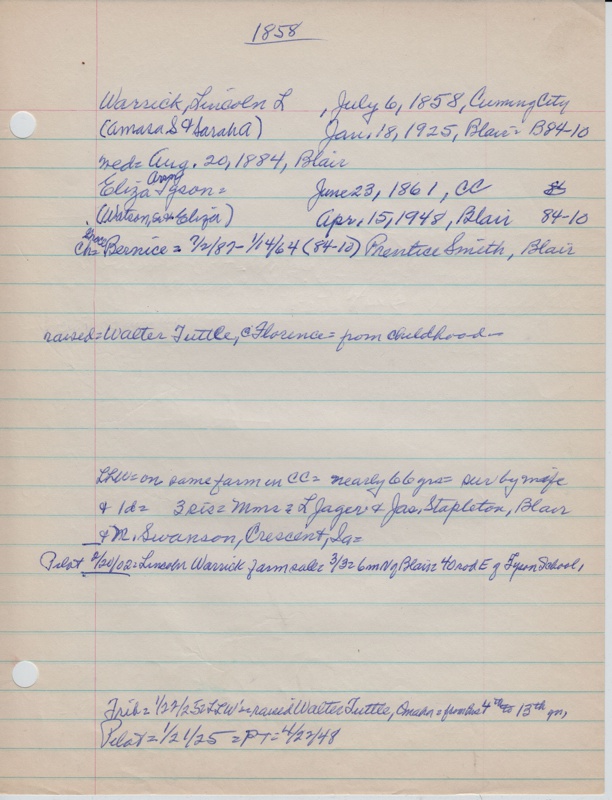 1858
Warrick, Lincoln L , July 6, 1858, Cuming City
(Amasa S & Sarah A) Jan. 18, 1925, Blair= B84-10
wed= Aug. 20, 1884, Blair
Eliza Ann Tyson= June 23, 1861, CC
(Watson, Sr & Eliza) Apr. 15, 1948, Blair 84-10
Ch= Grace Bernice= 7/2/87-1/14/64 (84-10) Prentice Smith, Blair
raised= Walter Tuttle, c Florence= from childhood—
LLW= on same farm in CC= nearly 66 yrs= sur by wife
& 1d= 3 sis= Mmes= L Jager & Jas. Stapleton, Blair
& M. Swanson, Crescent, Ia=
Pilot 2/20/02= Lincoln Warrick farm sale= 3/3= 6mN of Blair= 40 rod E of Tyson School,
Trib= 1/22/25= LLW's= raised Walter Tuttle, Omaha= from his 4th to 13th yr,
Pilot= 1/21/25 = PT= 4/22/48